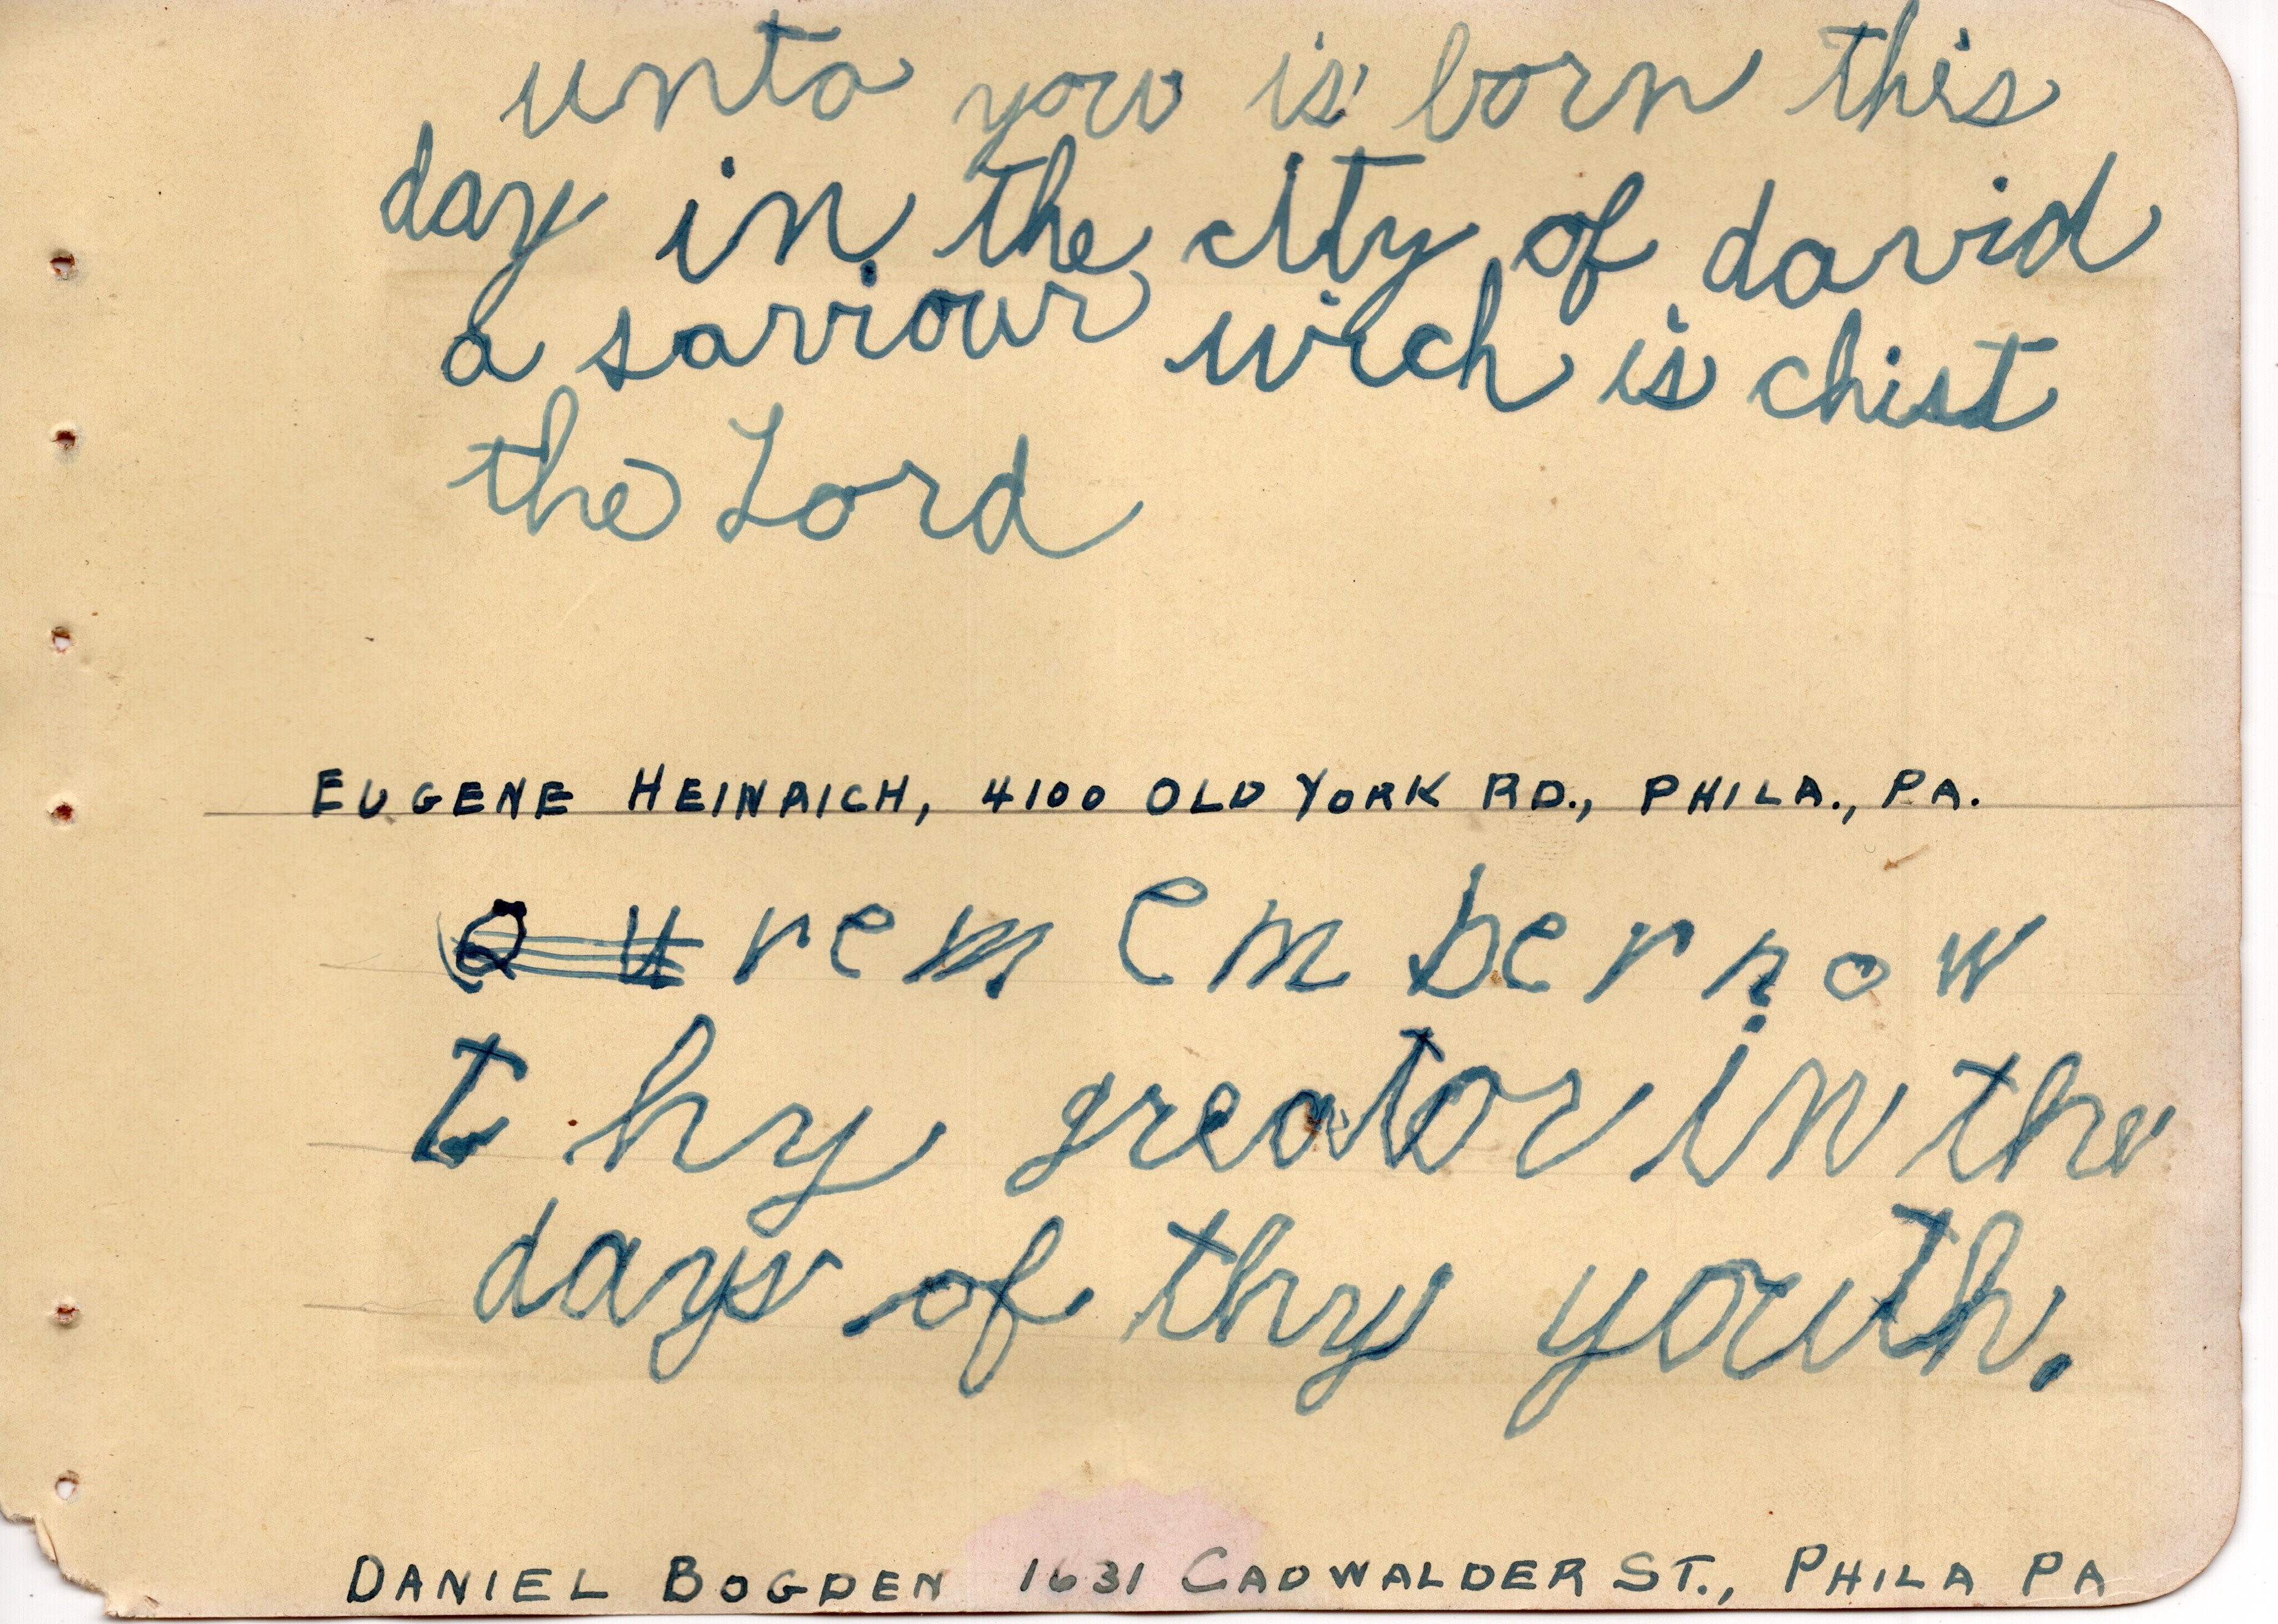 unto you is born this
day in the city of david
a saviour wich is chist
the Lord
EUGENE HEINRICH, 4100 OLD YORK RD., PHILA., PA.
rem em ber now
t hy greator in the
days of thy youth.
DANIEL BOGDEN 1631 CADWALDER ST., PHILA PA